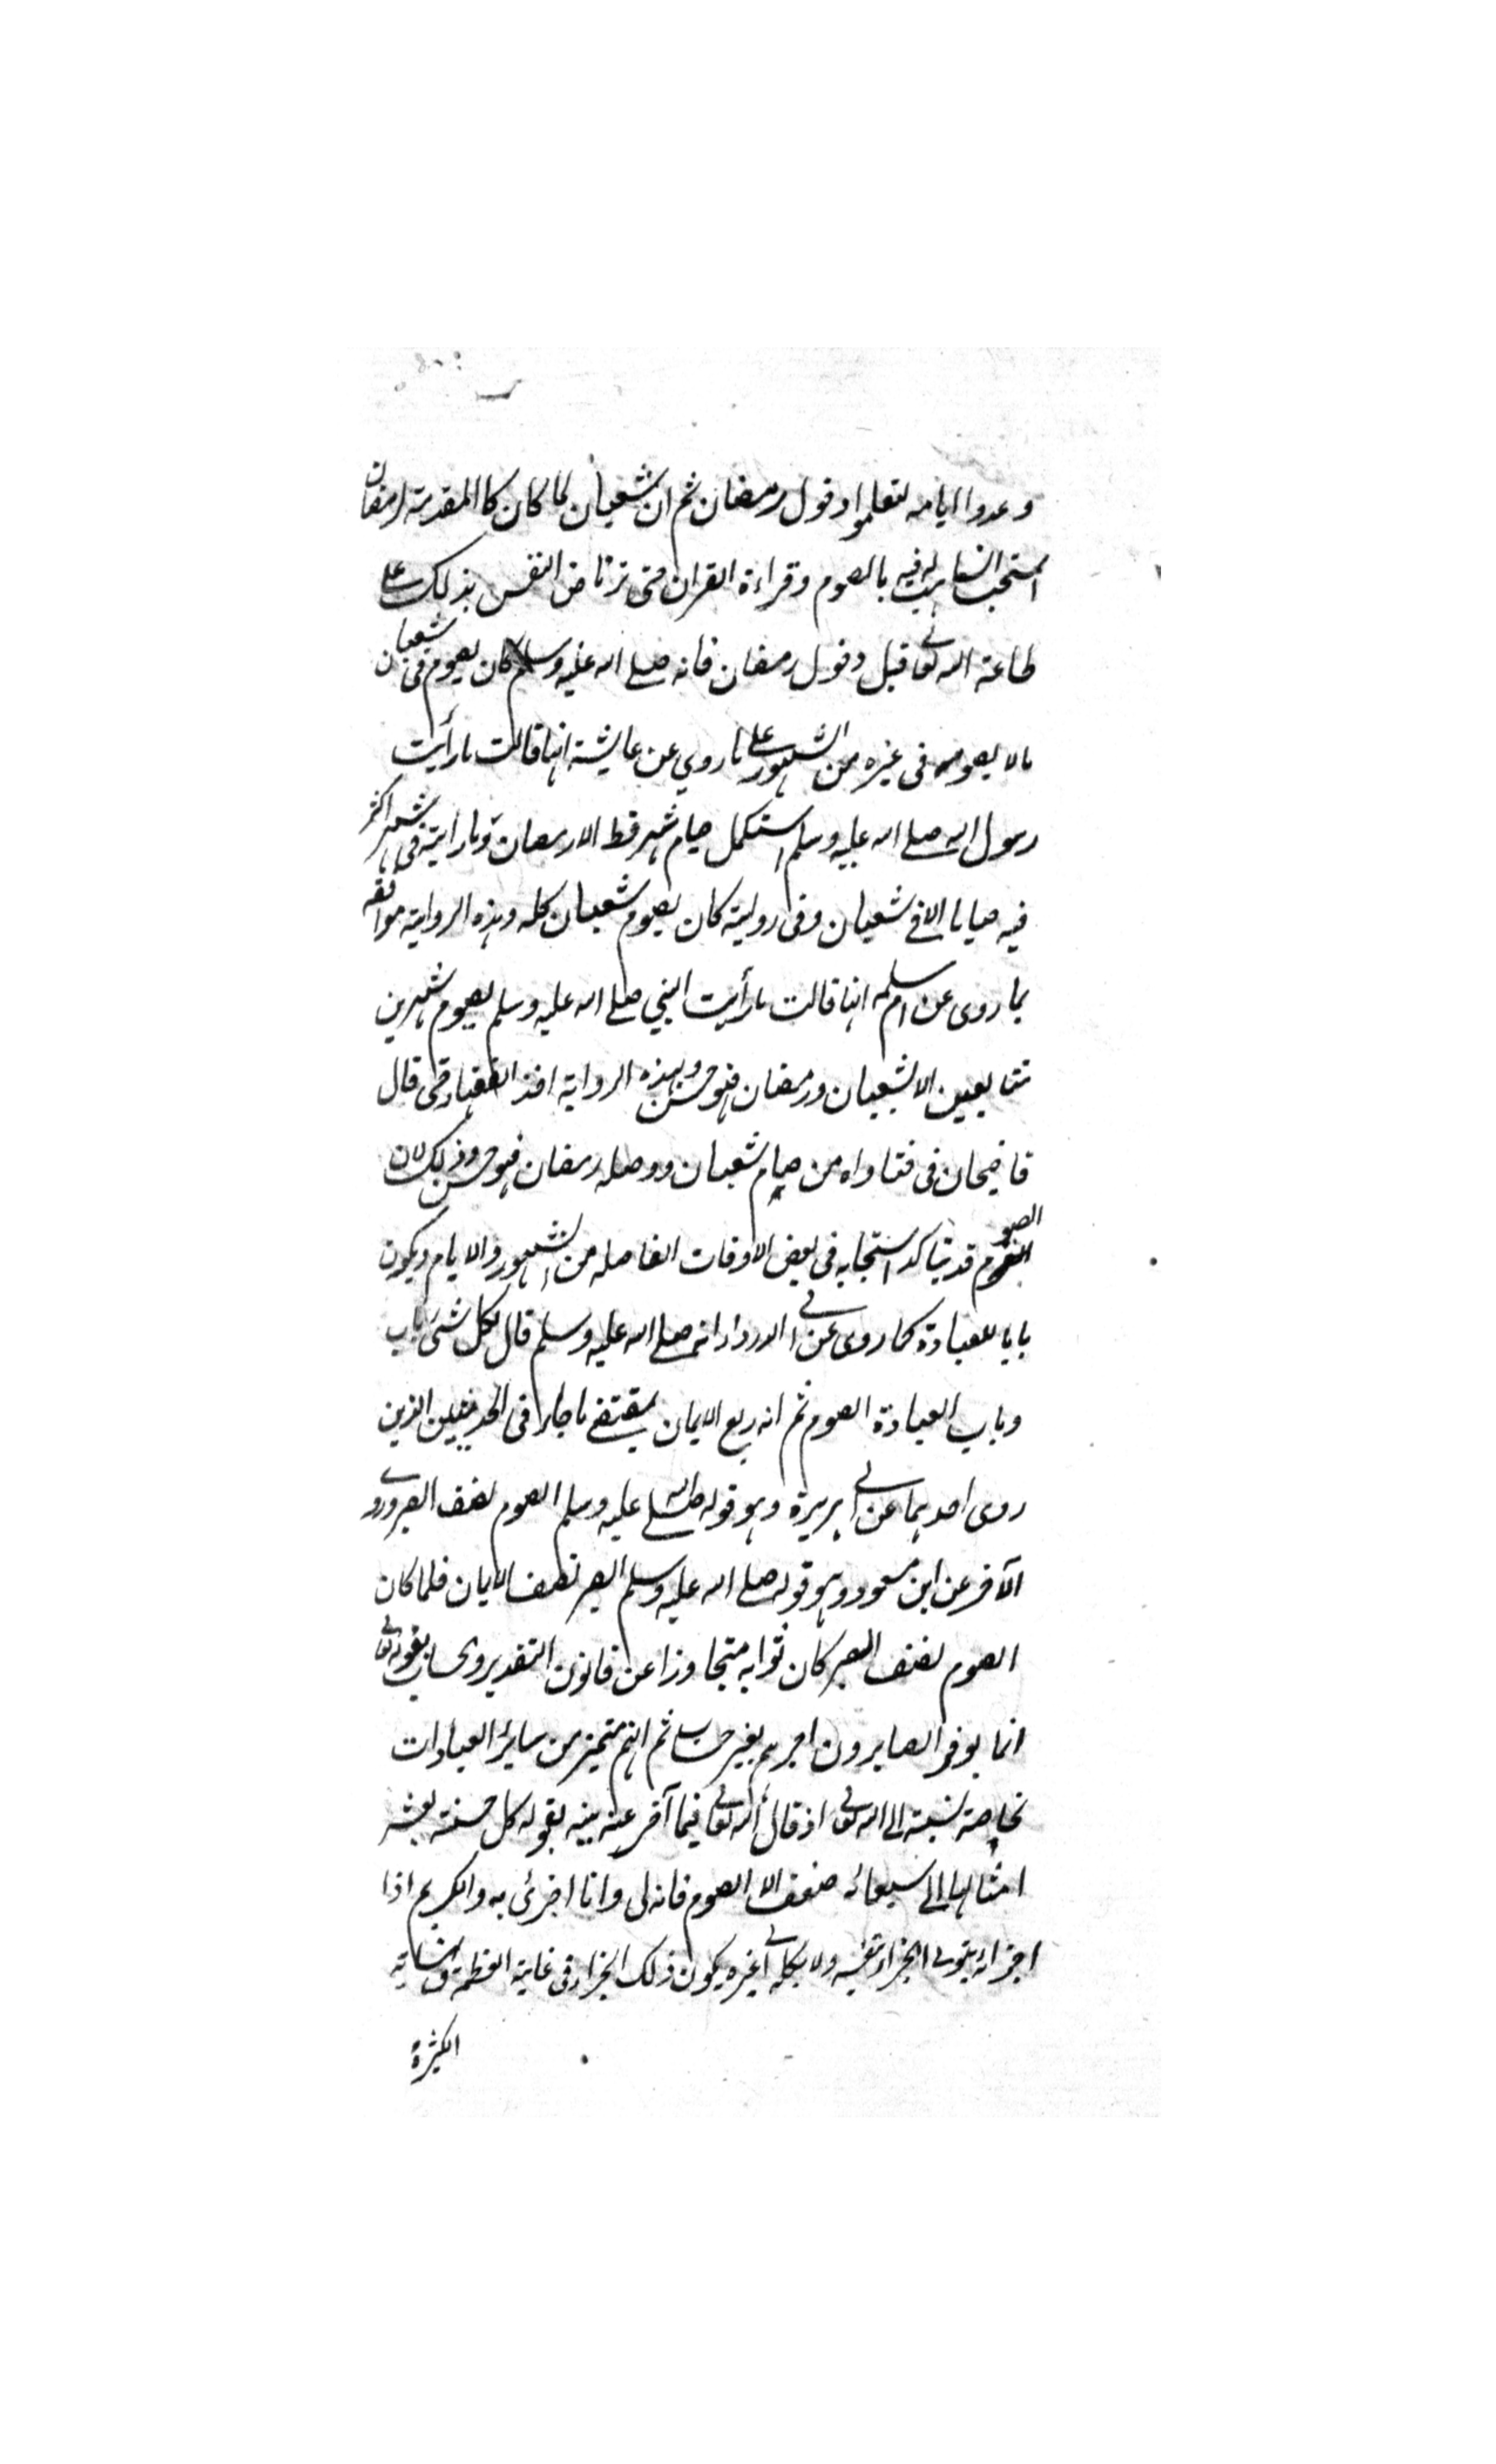 وعدوا ايامه لتعلموا دخول رمضان ثم ان شعبان لما كان كالمقدمة لرمضان
استحب التاهب له فيه بالصوم وقراءة القران حتى ترتاض النفس بذلك على
طاعة الله تعالى قبل دخول رمضان فانه صلى الله عليه وسلم كان يصوم في شعبان
ما لا يصوم في غيره من الشهور على ما روي عن عايشة انها قالت ما رأيت
رسول الله صلى الله عليه وسلم استكمل صيام شهر قط الا رمضان وما رأيته في شهر اكثر
فيه صياما الا في شعبان وفي رواية كان يصوم شعبان كله وهذه الرواية موافقه
بما روى عن ام سلمه انها قالت ما رأيت النبي صلى الله عليه وسلم يصوم شهرين
متتابعين الا شعبان ورمضان فهو حسن وبهذه الرواية اخذ الفقهاء حتى قال
قاضيخان في فتاواه من صام شعبان ووصله رمضان فهو حسن وذلك لان
الصوم قد يتاكد استحبابه في بعض الاوقات الفاضله من الشهور والايام ويكون
بابا للعبادة كما روى عن ابي الدرداء انه صلى الله عليه وسلم قال لكل شئ باب
وباب العبادة الصوم ثم انه ربع الايمان بمقتضى ما جاء في الحديثين الذين
روى احدهما عن ابي هريرة وهو قوله صلى الله عليه وسلم الصوم نصف الصبر وروى
الآخر عن ابن مسعود وهو قوله صلى الله عليه وسلم الصبر نصف الايمان فلما كان
الصوم نصف الصبر كان ثوابه متجاوزا عن قانون التقدير وحساب بقوله تعالى
انما يوفى الصابرون اجرهم بغير حساب ثم انهم متميز من سائر العبادات
بخاصة نسبته الى الله تعالى اذ قال الله تعالى فيما آخر عنه نبيه بقوله كل حسنة بعشر
امثالها الى سبعمائه ضعف الا الصوم فانه لي وانا اجزئ به والكريم اذا
اجزاه يتولى الجزاء بنفسه ولا يكله الى غيره يكون ذلك الجزاء في غاية العظمة ونهاية
الكثرة